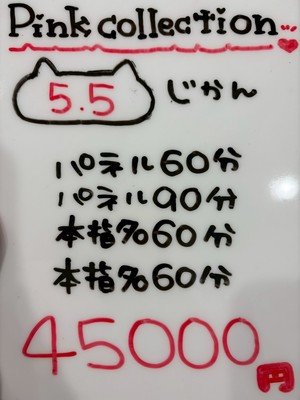 Pink collection
5.5 じかん
パネル60分
パネル90分
本指名60分
本指名60分
45000円